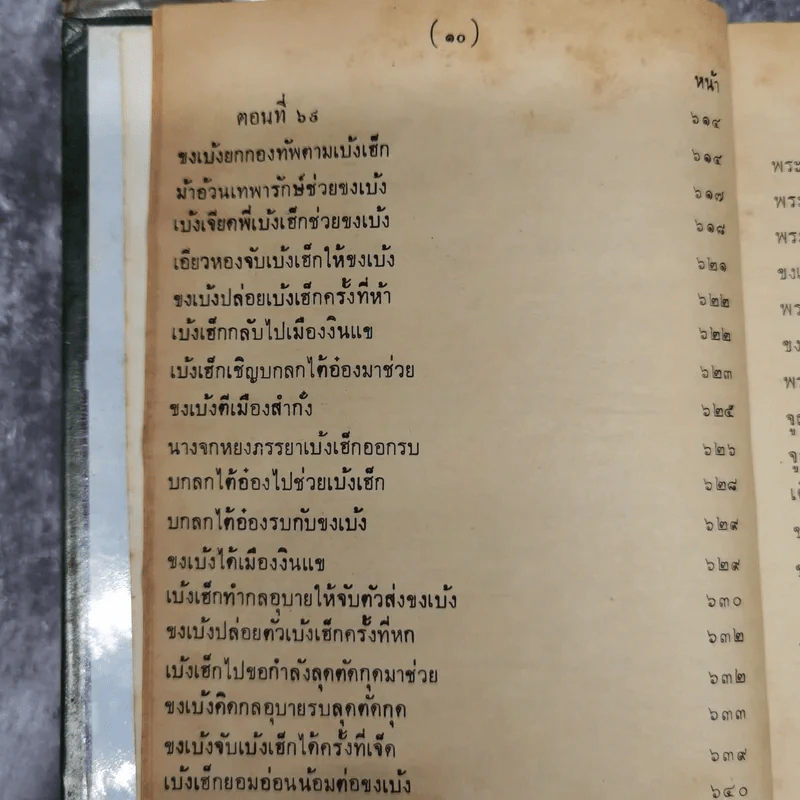 (๑๐)
หน้า
ตอนที่ ๖๘ ๖๑๔
ขงเบ้งยกกองทัพตามเบ้งเฮ็ก ๖๑๔
ม้าอ้วนเทพารักษ์ช่วยขงเบ้ง ๖๑๗
เบ้งเจียดพี่เบ้งเฮ็กช่วยขงเบ้ง ๖๑๘
เอียวหองจับเบ้งเฮ็กให้ขงเบ้ง ๖๒๑
ขงเบ้งปล่อยเบ้งเฮ็กครั้งที่ห้า ๖๒๒
เบ้งเฮ็กกลับไปเมืองงินแข ๖๒๒
เบ้งเฮ็กเชิญบกลกไต้อ๋องมาช่วย ๖๒๓
ขงเบ้งตีเมืองสำกั๋ง ๖๒๕
นางจกหยงภรรยาเบ้งเฮ็กออกรบ ๖๒๖
บกลกไต้อ๋องไปช่วยเบ้งเฮ็ก ๖๒๘
บกลกไต้อ๋องรบกับขงเบ้ง ๖๒๙
ขงเบ้งได้เมืองงินแข ๖๒๙
เบ้งเฮ็กทำกลอุบายให้จับตัวส่งขงเบ้ง ๖๓๐
ขงเบ้งปล่อยตัวเบ้งเฮ็กครั้งที่หก ๖๓๒
เบ้งเฮ็กไปขอกำลังลุดตัดกุดมาช่วย ๖๓๒
ขงเบ้งคิดกลอุบายรบลุดตัดกุด ๖๓๓
ขงเบ้งจับเบ้งเฮ็กได้ครั้งที่เจ็ด ๖๓๙
เบ้งเฮ็กยอมอ่อนน้อมต่อขงเบ้ง ๖๔๐
พระ
พระ
พระ
ขงเ
พระ
ขง
พระ